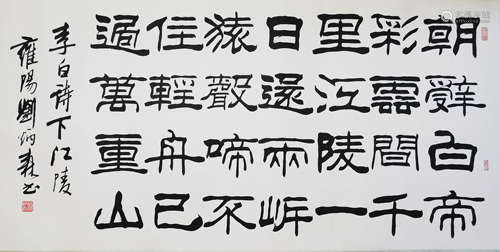 朝辤白帝
彩雲間千
里江陵一
日還兩岸
猿聲啼不
住輕舟已
過萬重山
李白詩下江陵
雍陽劉炳森书